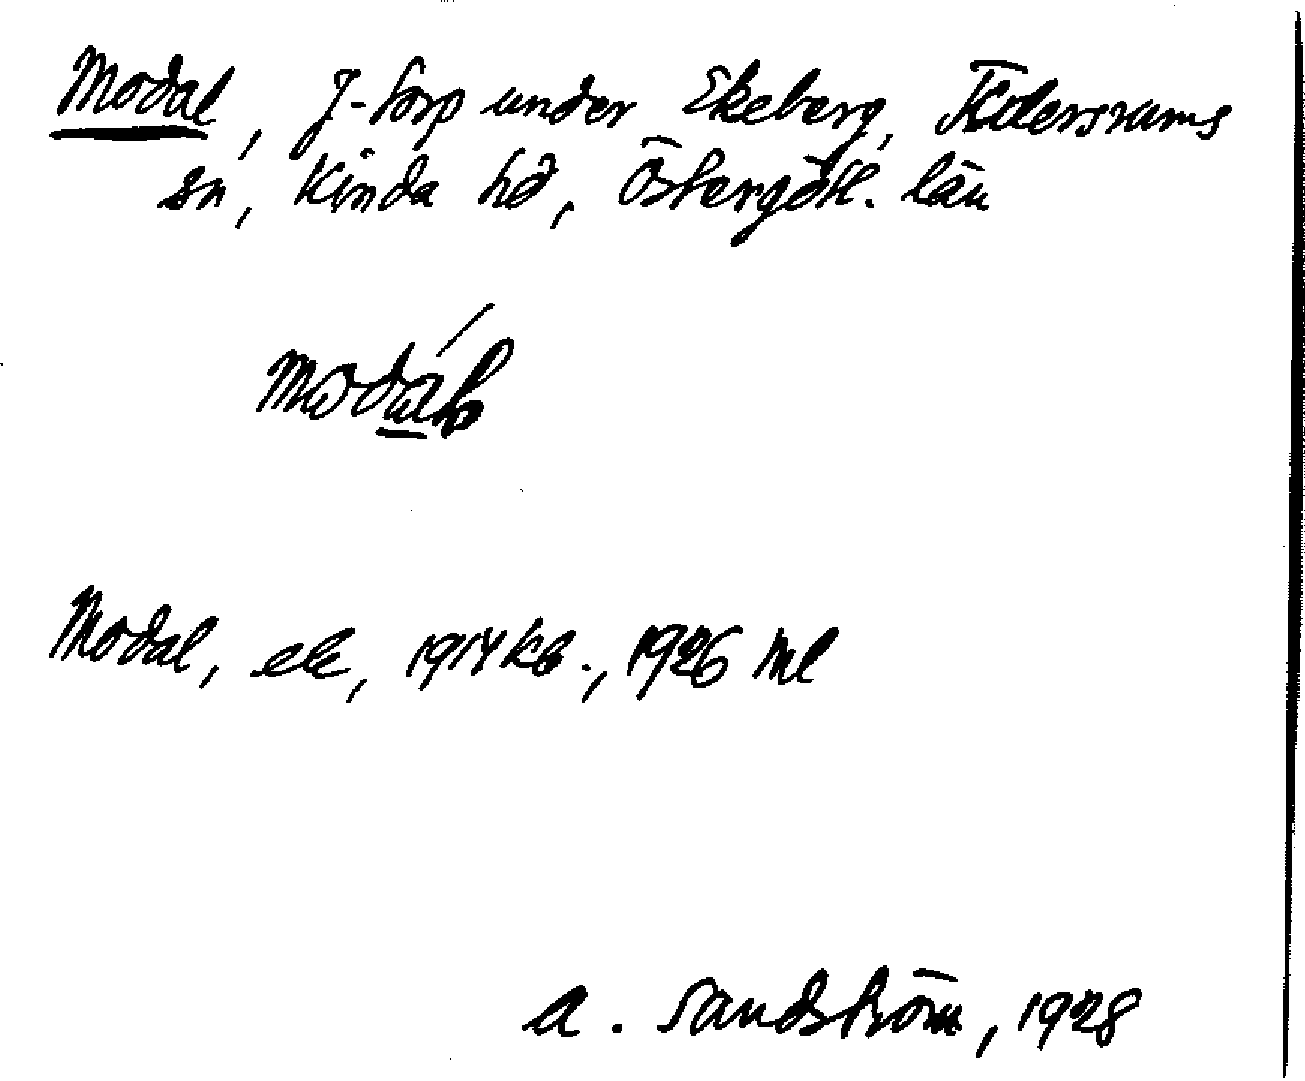 Modal, J-torp under Ekeberg, Tidersrums
sn, Kinda hd, Östergötl. län
Modal, ek, 1914 kb., 1926 ml
A. Sandström, 1928